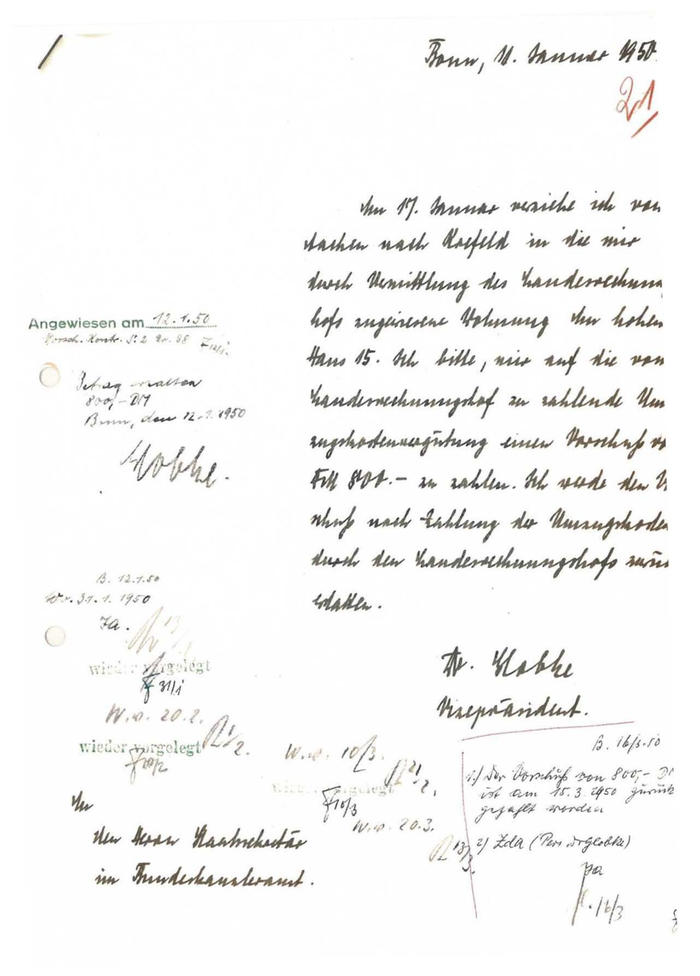 Bonn, 11. Januar 1950.
21
Am 17. Januar verziehe ich von
Aachen nach Krefeld in die mir
durch Vermittlung des Landesrechnun
hofs zugewiesene Wohnung Am hohen
Haus 15. Ich bitte, mir auf die vom
Landesrechnungshof zu zahlende Um
zugskostenvergütung einen Vorschuß vo
DM 800.- zu zahlen. Ich werde den V
schuß nach Zahlung der Umzugskosten
durch den Landesrechnungshof zurü
erstatten.
Dr. Globke
Vizepräsident.
Angewiesen am 12.1.50
Betrag erhalten
800,- DM
Bonn, den 12.1.1950
Globke.
B. 12.1.50
Wv. 31.1.1950
wieder vorgelegt
31/1
W.v. 20.2.
wieder vorgelegt
20/2
W.v. 10/3.
wieder vorgelegt
10/3
W.v. 20.3.
An
den Herrn Staatssekretär
im Bundeskanzleramt.
B. 16/3.50
1.) Der Vorschuß von 800,- D
ist am 15.3.1950 zurück
gezahlt worden
2) ZdA (Pers. Dr Globke)
16/3